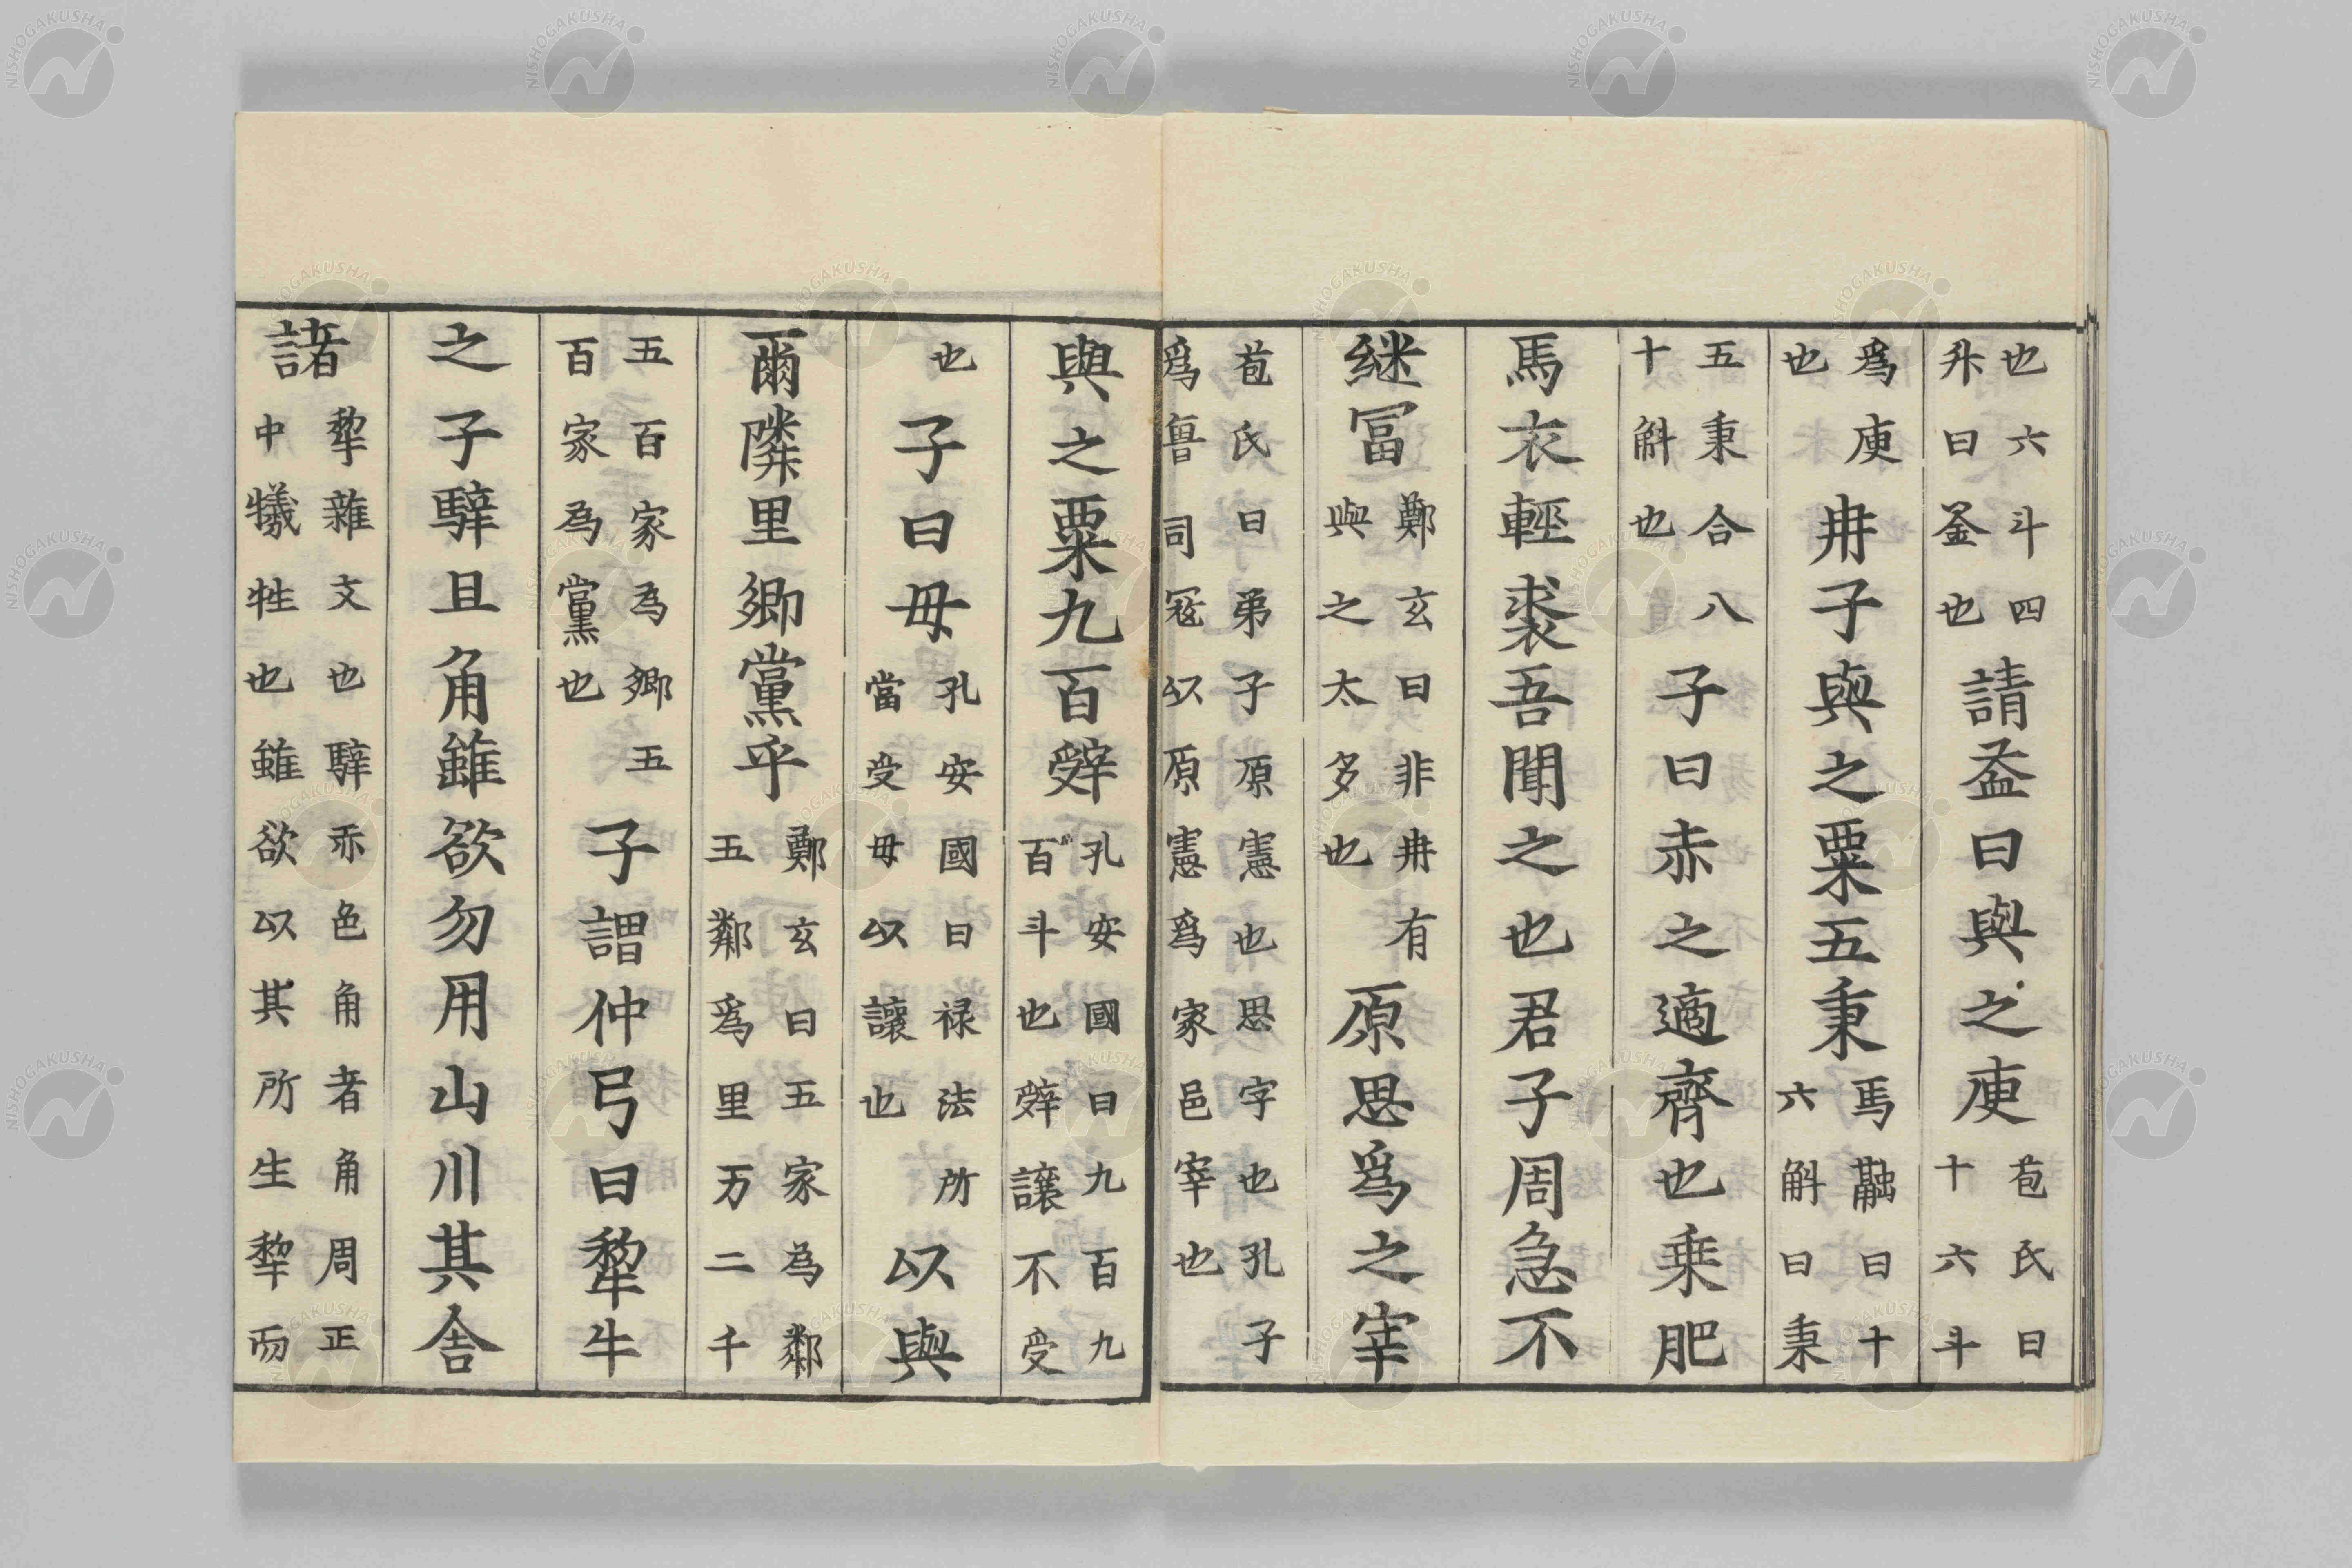 也六斗四升曰釜也請益曰與之庾苞氏曰十六斗
爲庾也冉子與之粟五秉馬融曰十六斛曰秉
五秉合八十斛也子曰赤之適齊也乗肥
馬衣輕裘吾聞之也君子周急不
継冨鄭玄曰非冉有與之太多也原思爲之宰
苞氏曰弟子原憲也思字也孔子爲魯司冦以原憲爲家邑宰也
與之粟九百辤孔安國曰九百九百斗也辤讓不受
也子曰毋孔安國曰禄法所當受毋以讓也以與
爾隣里郷黨乎鄭玄曰五家為鄰五鄰爲里万二千
五百家為郷五百家為黨也子謂仲弓曰犂牛
之子騂且角雖欲勿用山川其舎
諸犂雜文也騂赤色角者角周正中犧牲也雖欲以其所生犂而
NISHOGAKUSHA